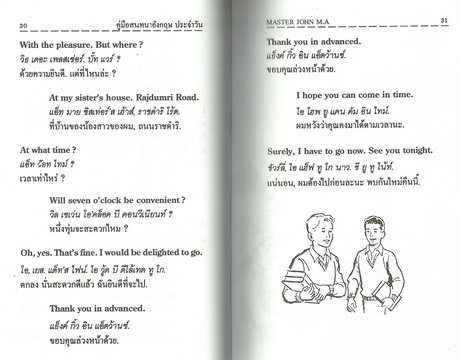 30 คู่มือสนทนาอังกฤษ ประจำวัน
With the pleasure. But where ?
วิธ เดอะ เพลสเช่อร์. บั๊ท แวร์ ?
ด้วยความยินดี. แต่ที่ไหนล่ะ ?
At my sister's house. Rajdumri Road.
แอ็ท มาย ซิสเท่อร์ส เฮ้าส์, ราชดำริ โร้ด.
ที่บ้านของน้องสาวของผม, ถนนราชดำริ.
At what time ?
แอ็ท ว้อท ไทม์ ?
เวลาเท่าไหร่ ?
Will seven o'clock be convenient ?
วิล เซเว่น โอ'คล็อค บี คอนวีเนียนท์ ?
หนึ่งทุ่มจะสะดวกไหม ?
Oh, yes. That's fine. I would be delighted to go.
โอ, เยส. แด็ท'ส ไฟน์. ไอ วู้ด บี ดีไล้เทด ทู โก.
ตกลง นั่นสะดวกดีแล้ว ฉันยินดีที่จะไป.
Thank you in advanced.
แธ็งค์ กิ้ว อิน แอ็ดว้านซ์.
ขอบคุณล่วงหน้าด้วย.
MASTER JOHN M.A 31
Thank you in advanced.
แธ็งค์ กิ้ว อิน แอ็ดว้านซ์.
ขอบคุณล่วงหน้าด้วย.
I hope you can come in time.
ไอ โฮพ ยู แคน คัม อิน ไทม์.
ผมหวังว่าคุณคงมาได้ตามเวลานะ.
Surely, I have to go now. See you tonight.
ชัวร์ลี่, ไอ แฮ็ฟ ทู โก นาว. ซี ยู ทู ไน้ท์.
แน่นอน, ผมต้องไปก่อนละนะ พบกันใหม่คืนนี้.